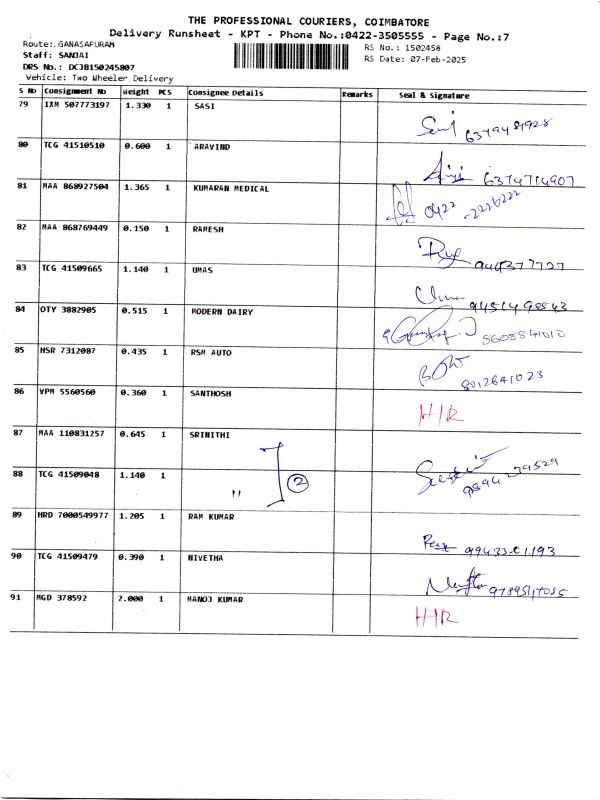 THE PROFESSIONAL COURIERS, COIMBATORE
Delivery Runsheet - KPT - Phone No.:0422-3505555 - Page No.:7
Route:.GANASAPURAM
RS No.: 1502458
Staff: SANJAI
RS Date: 07-Feb-2025
DRS No.: DCJB150245807
Vehicle: Two Wheeler Delivery
S No Consignment No Weight PCS Consignee Details Remarks Seal & Signature
79 IXM 507773197 1.330 1 SASI
80 TCG 41510510 0.600 1 ARAVIND
6374714907
81 MAA 868927504 1.365 1 KUMARAN MEDICAL
0422 -2226222
82 MAA 868769449 0.150 1 RAMESH
83 TCG 41509665 1.140 1 UMAS
84 OTY 3882905 0.515 1 MODERN DAIRY
85 HSR 7312087 0.435 1 RSM AUTO
8012641023
86 VPM 5560560 0.360 1 SANTHOSH
H/R
87 MAA 110831257 0.645 1 SRINITHI
88 TCG 41509048 1.140 1 " 2
9894279529
89 HRD 7000549977 1.205 1 RAM KUMAR
90 TCG 41509479 0.390 1 NIVETHA
91 MGD 378592 2.000 1 MANOJ KUMAR
H/R